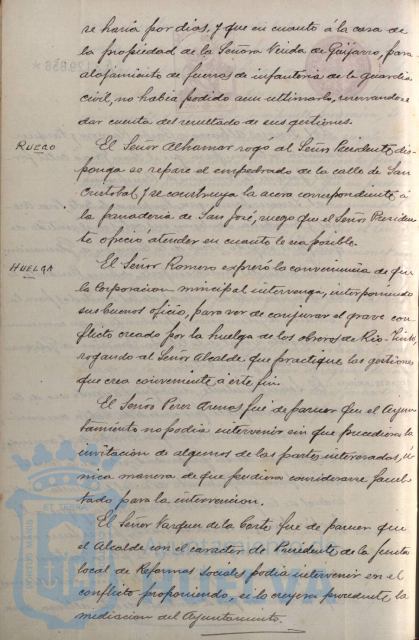 se haria por dias, y que en cuanto á la casa de
la propiedad de la Señora Viuda de Guijarro, para
alojamiento de fuerzas de infanteria de la Guardia
civil, no habia podido aun ultimarlo, reservandose
dar cuenta del resultado de sus gestiones.
RUEGO
El Señor Alhamar rogó al Señor Presidente dis-
ponga se repare el empedrado de la calle de San
Cristobal y se construya la acera correspondiente á
la panaderia de San José, ruego que el Señor Presiden-
te ofreció atender en cuanto le sea posible.
HUELGA
El Señor Romero expresó la conveniencia de que
la Corporacion municipal intervenga, interponiendo
sus buenos oficios, para ver de conjurar el grave con
flicto creado por la huelga de los obreros de Rio-Tinto,
rogando al Señor Alcalde que practique las gestiones
que crea conveniente á este fin.
El Señor Perez Arenas fué de parecer que el Ayun-
tamiento no podia intervenir sin que precediera la
invitacion de algunas de las partes interesadas, ú
nica manera de que pudiera considerarse facul-
tado para la intervencion.
El Señor Vazquez de la Corte fue de parecer que
el Alcalde con el caracter de Presidente de la Junta
local de Reformas Sociales podia intervenir en el
conflicto proponiendo, si lo creyera procedente la
mediacion del Ayuntamiento.